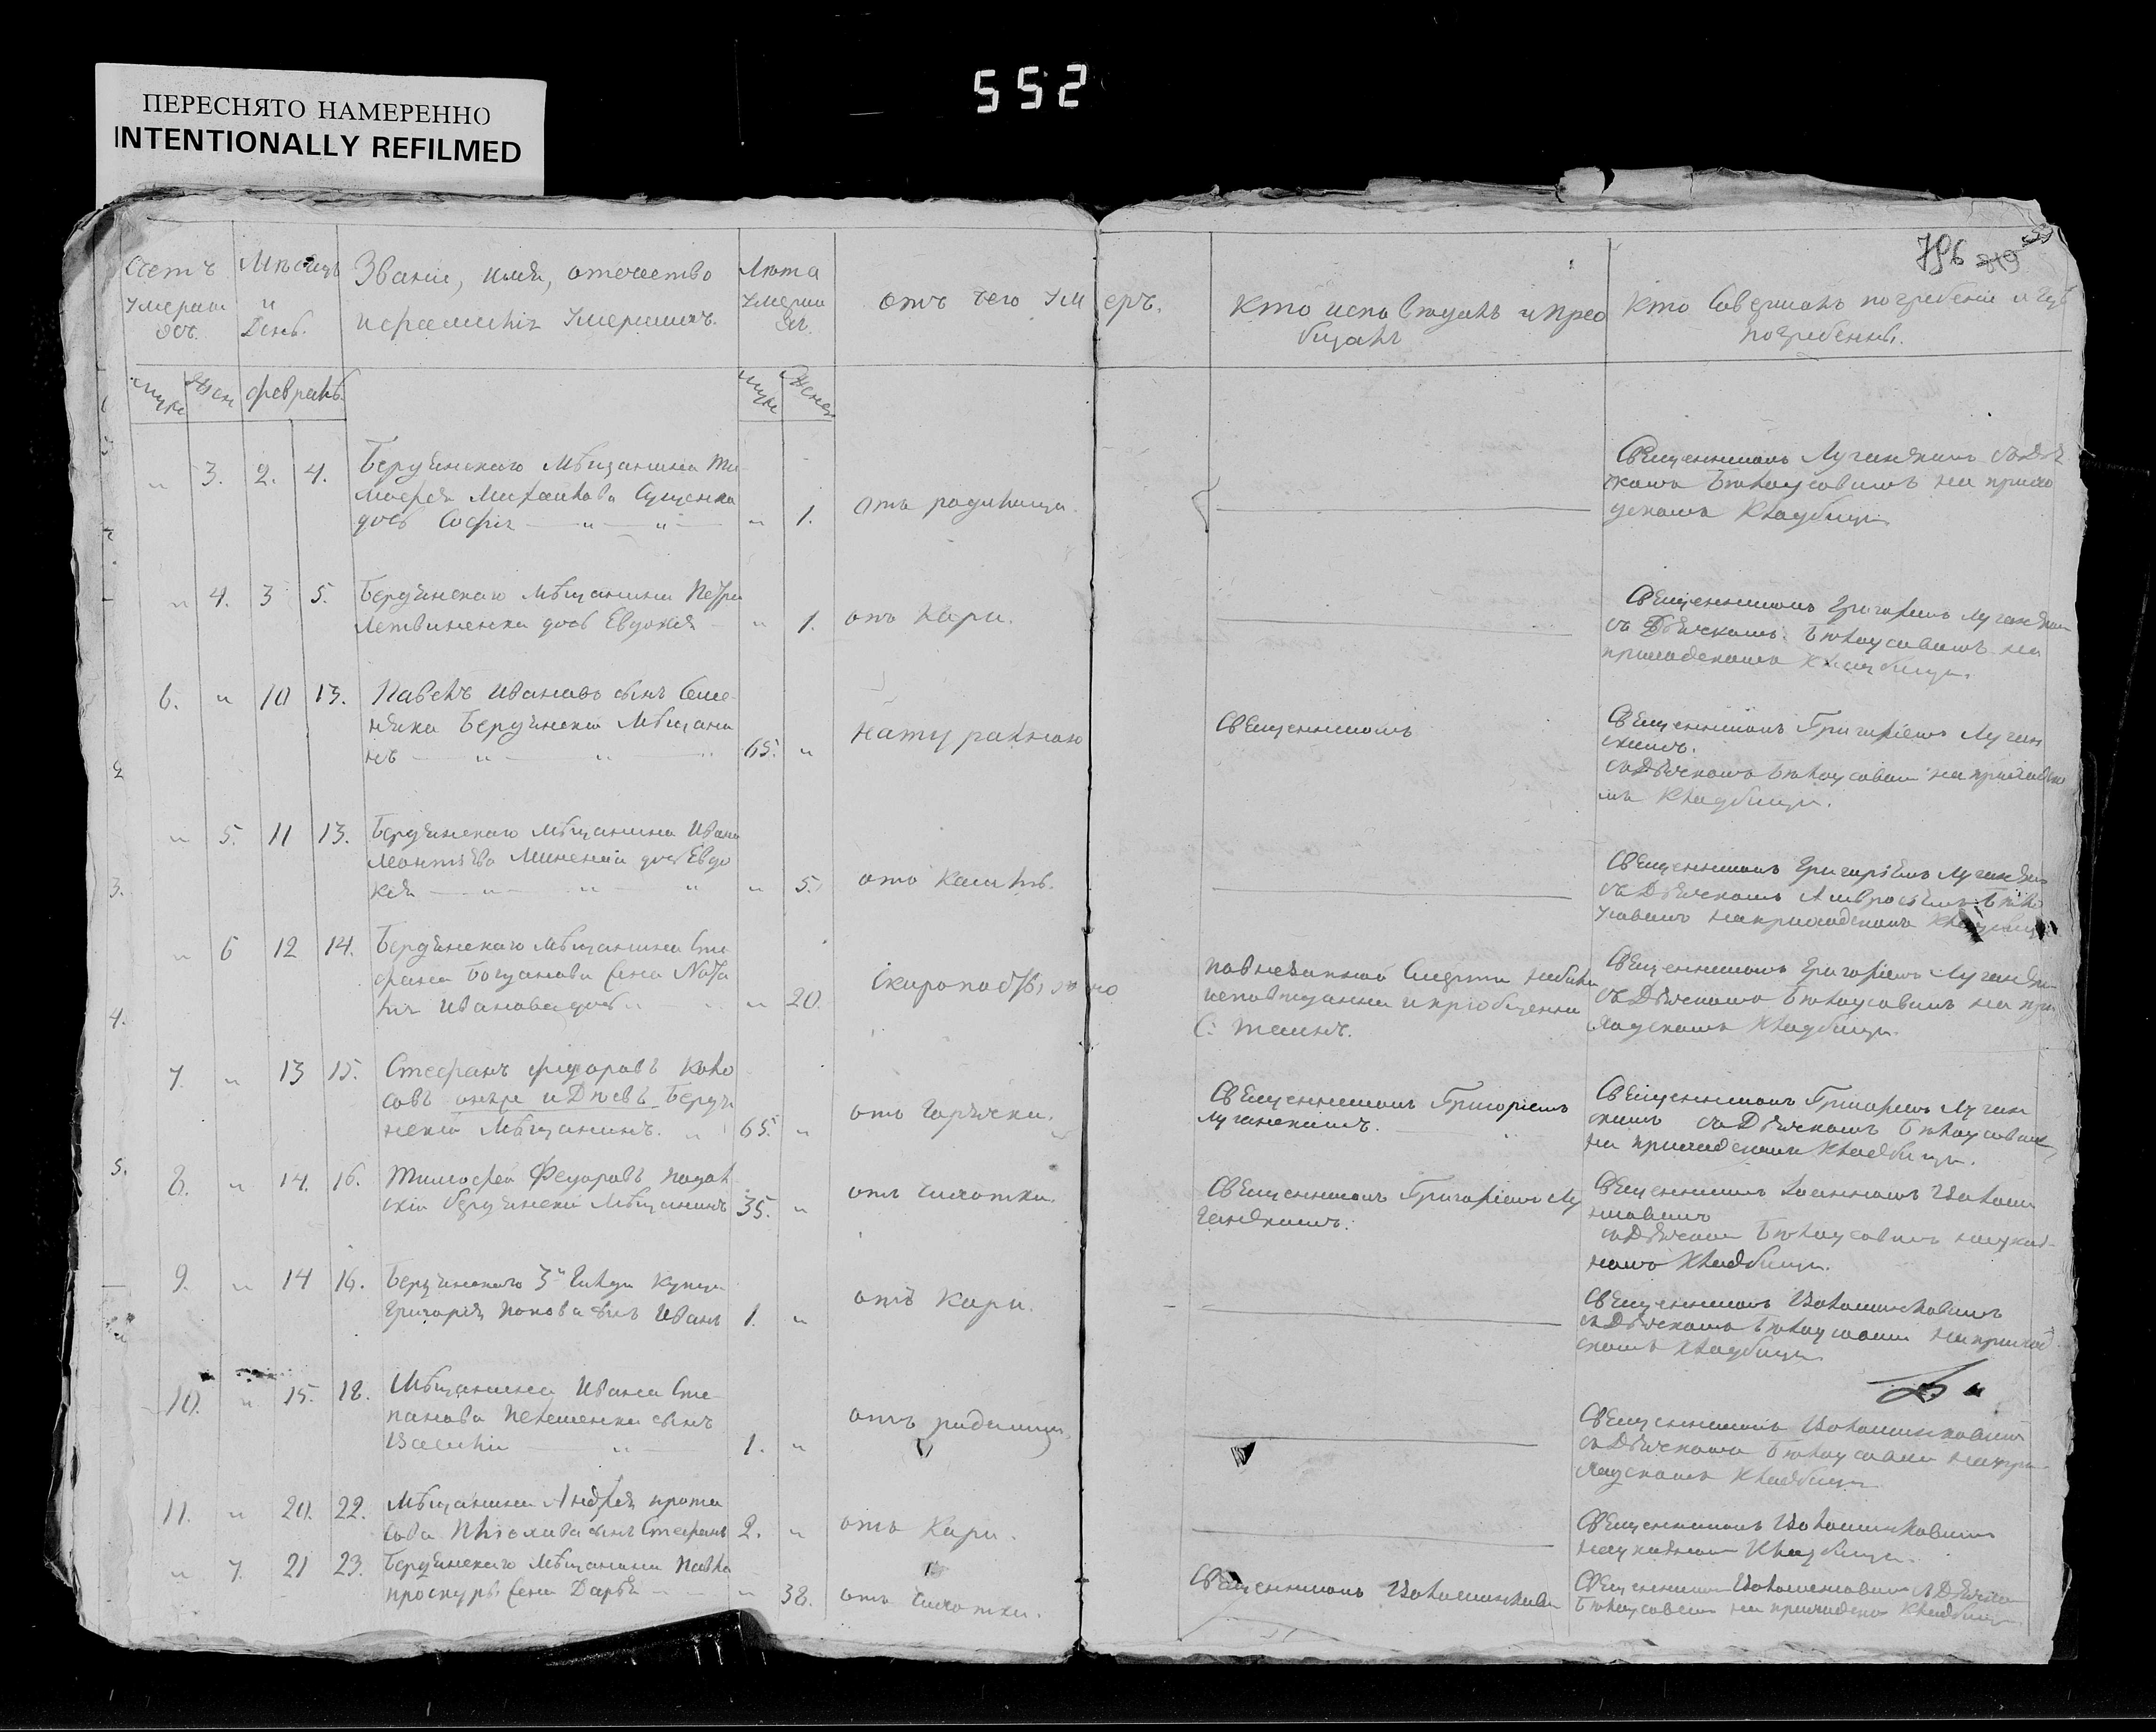 552
ПЕРЕСНЯТО НАМЕРЕННО
INTENTIONALLY REFILMED
796
Счетъ
умерш
ихъ.
Мѣсяцъ
и
День.
Званіе, имя, отечество
и фамилія умершихъ.
Лѣта
умерш
ихъ
отъ чего умеръ.
Кто исповѣдалъ и прео
бщалъ
Кто Совершалъ погребеніе и гдѣ
погребены.
муж
жен
февраль
муж
женс
" 3. 2. 4. Бердянскаго Мѣщанина Ти
мофея Михайлова Сущенка
дочь Софія " 1. отъ родимца
Священникомъ Луганскимъ съ Дья
комъ Бѣлоусовымъ на прихо
дскомъ Кладбищи
" 4. 3 5. Бердянскаго Мѣщанина Петра
Летвиненка дочь Евдокія " 1. отъ Кори.
Священникомъ Григоріемъ Луганским
съ Дьячкомъ Бѣлоусовымъ на
приходскомъ Кладбищи.
6. " 10 13. Павелъ Ивановъ сынъ Семе
няка Бердянскій Мѣщани
нъ 65. " натуральною
Священникомъ
Священникомъ Григоріемъ Луган
скимъ.
съ Дьячкомъ Бѣлоусовым на приходско
мъ Кладбищи.
" 5. 11 13. Бердянскаго Мѣщанина Ивана
дочь Евдо
кія " 5. отъ Кашля.
Священникомъ Григоріемъ Луганским
съ Дьячкомъ Амвросіемъ Бѣло
усовымъ на приходскомъ Кладбищи
" 6 12 14. Бердянскаго Мѣщанина Сте
фана Богданова жена Ната
лія Иванова дочь " 20. Скоропостижно
по внезапной Смерти небыла
исповѣданна и пріобщенна
С. Таинъ.
Священникомъ Григоріемъ Лугански
съ Дьячкомъ Бѣлоусовымъ на при
ходскомъ Кладбищи.
7. " 13 15. Стефанъ Федоровъ Коло
совъ онже и Дпевъ Бердя
нскій Мѣщанинъ. 65. " отъ Горячки.
Священникомъ Григоріемъ
Луганскимъ.
Священникомъ Григоріемъ Луган
скимъ съ Дьячкомъ Бѣлоусовым
на приходскомъ Кладбищи.
8. " 14. 16. Тимофей Федоровъ Подол
скій бердянскій Мѣщанинъ 35. " отъ чихотки.
Священникомъ Григоріемъ Лу
ганскимъ.
Священникомъ Іоанномъ
съ Дьячком Бѣлоусовымъ
Кладбищи.
9. " 14 16. Бердянскаго 3й Гилди Купца
Григорія Попова сынъ Иванъ 1. " отъ Кори.
Священникомъ
съ Дьячкомъ Бѣлоусовым на приход
скомъ Кладбищи
10. " 15. 18. Мѣщанина Ивана Сте
панова Пелешенка сынъ
Василій 1. " отъ родимца
Священникомъ
съ Дьячкомъ Бѣлоусовым на при
ходскомъ Кладбищи
11. " 20. 22. Мѣщанина Андрея
сынъ Стефанъ 2. " отъ Кори.
Священникомъ
Кладбищи.
" 7. 21 23. Бердянскаго Мѣщанина Павла
Проскуры жена Дарья " 38. отъ чихотки.
Священникомъ
Священником съ Дьячком
Бѣлоусовым на приходско Кладбищи